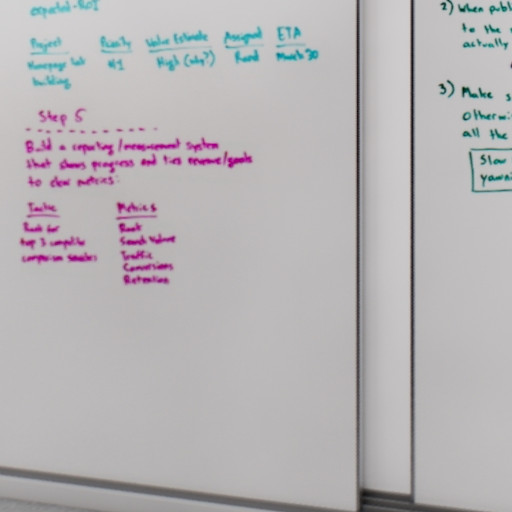 expected-ROI
Project Priority Value Estimate Assigned ETA
Homepage link #1 High (why?) Rand March 30
building
Step 5
Build a reporting/measurement system
that shows progress and ties revenue/goals
to clear metrics:
Tactic Metrics
Rank for Rank
top 3 Search Volume
comparison searches Traffic
Conversions
Retention
2) When publ
to the
actually
3) Make s
otherwi
all the
Slow
yawni